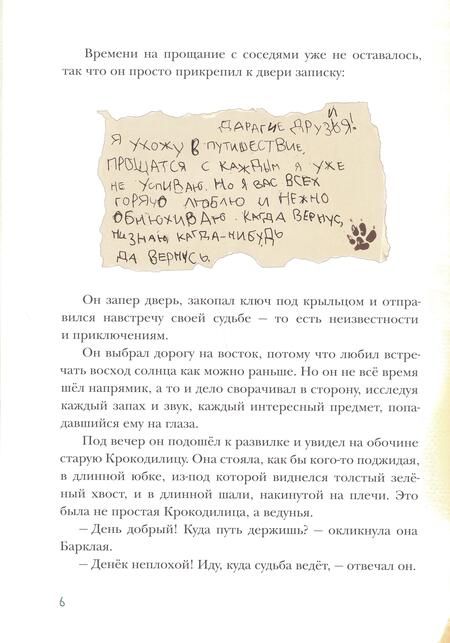 Времени на прощание с соседями уже не оставалось,
так что он просто прикрепил к двери записку:
ДАРАГИЕ ДРУЗЬЯ!
И
Я УХОЖУ В ПУТИШЕСТВИЕ,
ПРОЩАТСЯ С КАЖДЫМ Я УЖЕ
НЕ УСПИВАЮ. НО Я ВАС ВСЕХ
ГОРЯЧО ЛЮБЛЮ И НЕЖНО
ОБНЮХИВАЮ. КАГДА ВЕРНУС,
НИЗНАЮ, КАГДА-НИБУДЬ
ДА ВЕРНУСЬ.
Он запер дверь, закопал ключ под крыльцом и отпра-
вился навстречу своей судьбе — то есть неизвестности
и приключениям.
Он выбрал дорогу на восток, потому что любил встре-
чать восход солнца как можно раньше. Но он не всё время
шёл напрямик, а то и дело сворачивал в сторону, исследуя
каждый запах и звук, каждый интересный предмет, попа-
давшийся ему на глаза.
Под вечер он подошёл к развилке и увидел на обочине
старую Крокодилицу. Она стояла, как бы кого-то поджидая,
в длинной юбке, из-под которой виднелся толстый зелё-
ный хвост, и в длинной шали, накинутой на плечи. Это
была не простая Крокодилица, а ведунья.
— День добрый! Куда путь держишь? — окликнула она
Барклая.
— Денёк неплохой! Иду, куда судьба ведёт, — отвечал он.
6